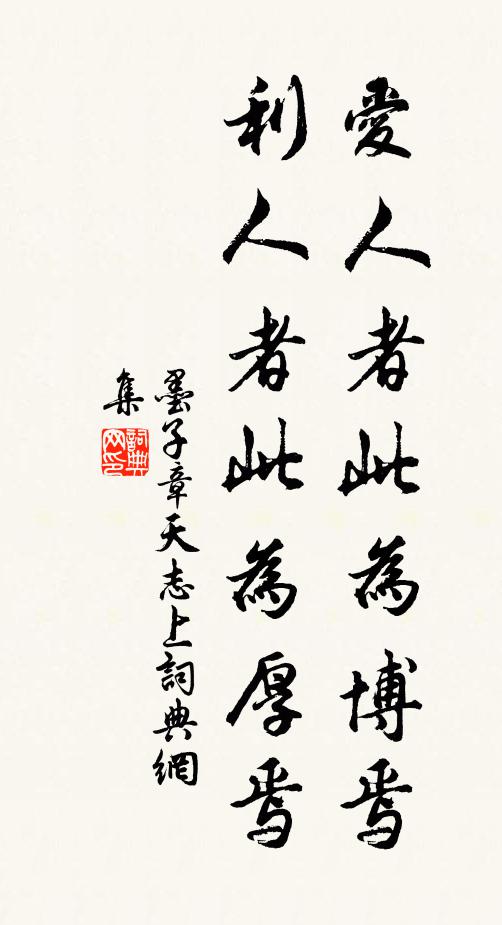 愛人者此為博焉
利人者此為厚焉
墨子章天志上詞典網
集
詞典网印